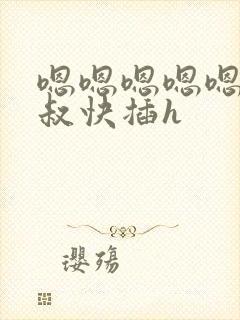 嗯嗯嗯嗯嗯
叔快插h
瓔殇